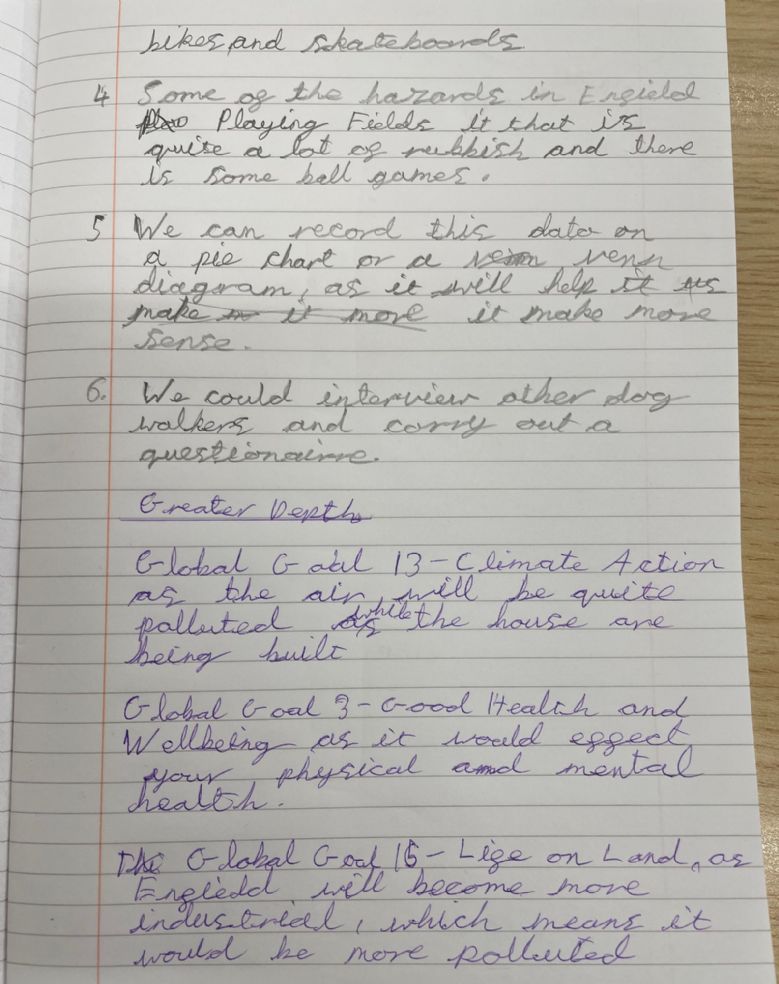 bikes, and skateboards.
4 Some of the hazards in Enfield
Playing Fields it that is
quite a lot of rubbish and there
is some ball games.
5 We can record this data on
a pie chart or a venn
diagram, as it will help it us
make it more it make more
sense.
6. We could interview other dog
walkers and carry out a
questionairre.
Greater Depth
Global Goal 13 - Climate Action
as the air will be quite
polluted while the house are
being built
Global Goal 3 - Good Health and
Wellbeing as it would effect
your physical and mental
health.
The Global Goal 15 - Life on Land, as
Enfiedd will become more
industrial, which means it
would be more polluted